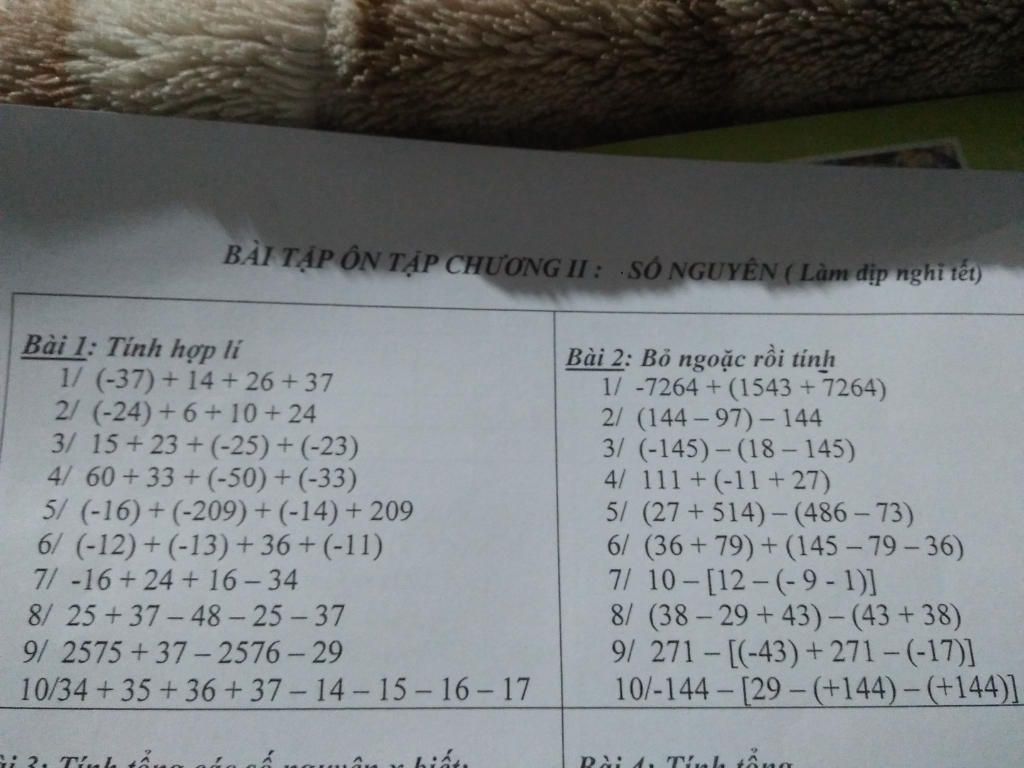 BÀI TẬP ÔN TẬP CHƯƠNG II : SỐ NGUYÊN ( Làm dịp nghỉ tết)
Bài 1: Tính hợp lí
1/ (-37) + 14 + 26 + 37
2/ (-24) + 6 + 10 + 24
3/ 15 + 23 + (-25) + (-23)
4/ 60 + 33 + (-50) + (-33)
5/ (-16) + (-209) + (-14) + 209
6/ (-12) + (-13) + 36 + (-11)
7/ -16 + 24 + 16 – 34
8/ 25 + 37 – 48 – 25 – 37
9/ 2575 + 37 – 2576 – 29
10/34 + 35 + 36 + 37 – 14 – 15 – 16 – 17
Bài 2: Bỏ ngoặc rồi tính
1/ -7264 + (1543 + 7264)
2/ (144 – 97) – 144
3/ (-145) – (18 – 145)
4/ 111 + (-11 + 27)
5/ (27 + 514) – (486 – 73)
6/ (36 + 79) + (145 – 79 – 36)
7/ 10 – [12 – (- 9 - 1)]
8/ (38 – 29 + 43) – (43 + 38)
9/ 271 – [(-43) + 271 – (-17)]
10/-144 – [29 – (+144) – (+144)]
ài 3: Tính tổng các số nguyên x biết:
Bài 4: Tính tổng